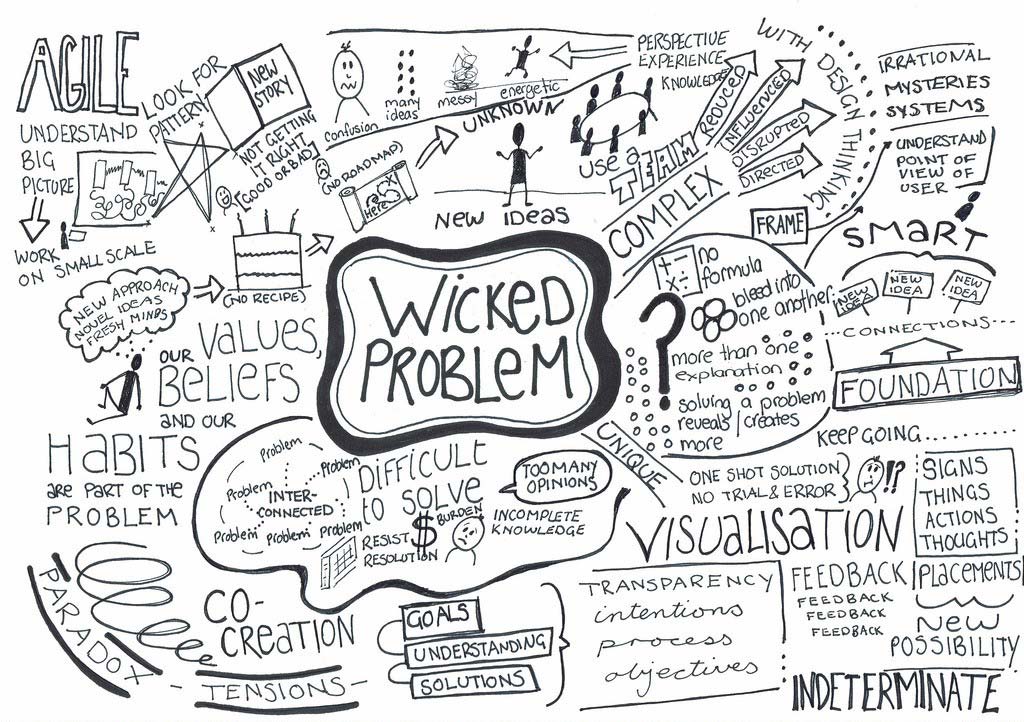 AGILE
UNDERSTAND
BIG
PICTURE
WORK
ON SMALL SCALE
LOOK FOR
PATTERN
NEW
STORY
NOT GETTING
IT RIGHT
(GOOD OR BAD)
confusion
many
ideas
messy
energetic
PERSPECTIVE
EXPERIENCE
KNOWLEDGE
UNKNOWN
(NO ROADMAP)
Here
NEW IDEAS
USE A
TEAM
COMPLEX
REDUCED
INFLUENCED
DISRUPTED
DIRECTED
WITH DESIGN THINKING
IRRATIONAL
MYSTERIES
SYSTEMS
UNDERSTAND
POINT OF
VIEW OF
USER
FRAME
SMART
NEW
IDEA
NEW
IDEA
NEW
IDEA
...CONNECTIONS...
FOUNDATION
KEEP GOING........
(NO RECIPE)
NEW APPROACH
NOVEL IDEAS
FRESH MINDS
OUR VALUES,
BELIEFS
AND OUR
HABITS
ARE PART OF THE
PROBLEM
WICKED
PROBLEM
+ -
x ÷
no
formula
bleed into
one another
?
more than one
explanation
solving a problem
reveals/creates
more
UNIQUE
ONE SHOT SOLUTION
NO TRIAL & ERROR
!?
VISUALISATION
SIGNS
THINGS
ACTIONS
THOUGHTS
PLACEMENTS
NEW
POSSIBILITY
INDETERMINATE
FEEDBACK
FEEDBACK
FEEDBACK
FEEDBACK
TRANSPARENCY
intentions
process
objectives
Problem
Problem
Problem
INTER-
CONNECTED
Problem
problem
Problem
DIFFICULT
to SOLVE
TOO MANY
OPINIONS
$
BURDEN
INCOMPLETE
KNOWLEDGE
RESIST
RESOLUTION
PARADOX
CO-
CREATION
- TENSIONS -
GOALS
UNDERSTANDING
SOLUTIONS